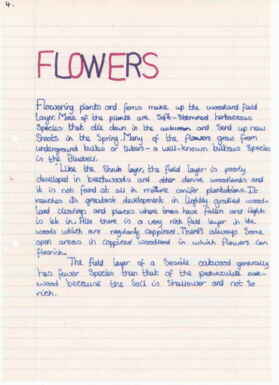 4.
FLOWERS
Flowering plants and ferns make up the woodland field
layer. Most of the plants are soft-stemmed herbaceous
species that die down in the autumn and send up new
shoots in the Spring. Many of the flowers grow from
underground bulbs or tubers - a well-known bulbous species
is the Bluebell.
Like the Shrub layer, the field layer is poorly
developed in beechwoods and other dense woodlands and
it is not found at all in mature conifer plantations. It
reaches its greatest development in lightly grazed wood-
land clearings and places where trees have fallen and light
is let in. Also there is a very rich field layer in the
woods which are regularly coppiced. There's always some
open areas in coppiced woodland in which flowers can
flourish.
The field layer of a Sessile oakwood generally
has fewer Species than that of the pedunculate oak-
wood because the soil is shallower and not so
rich.